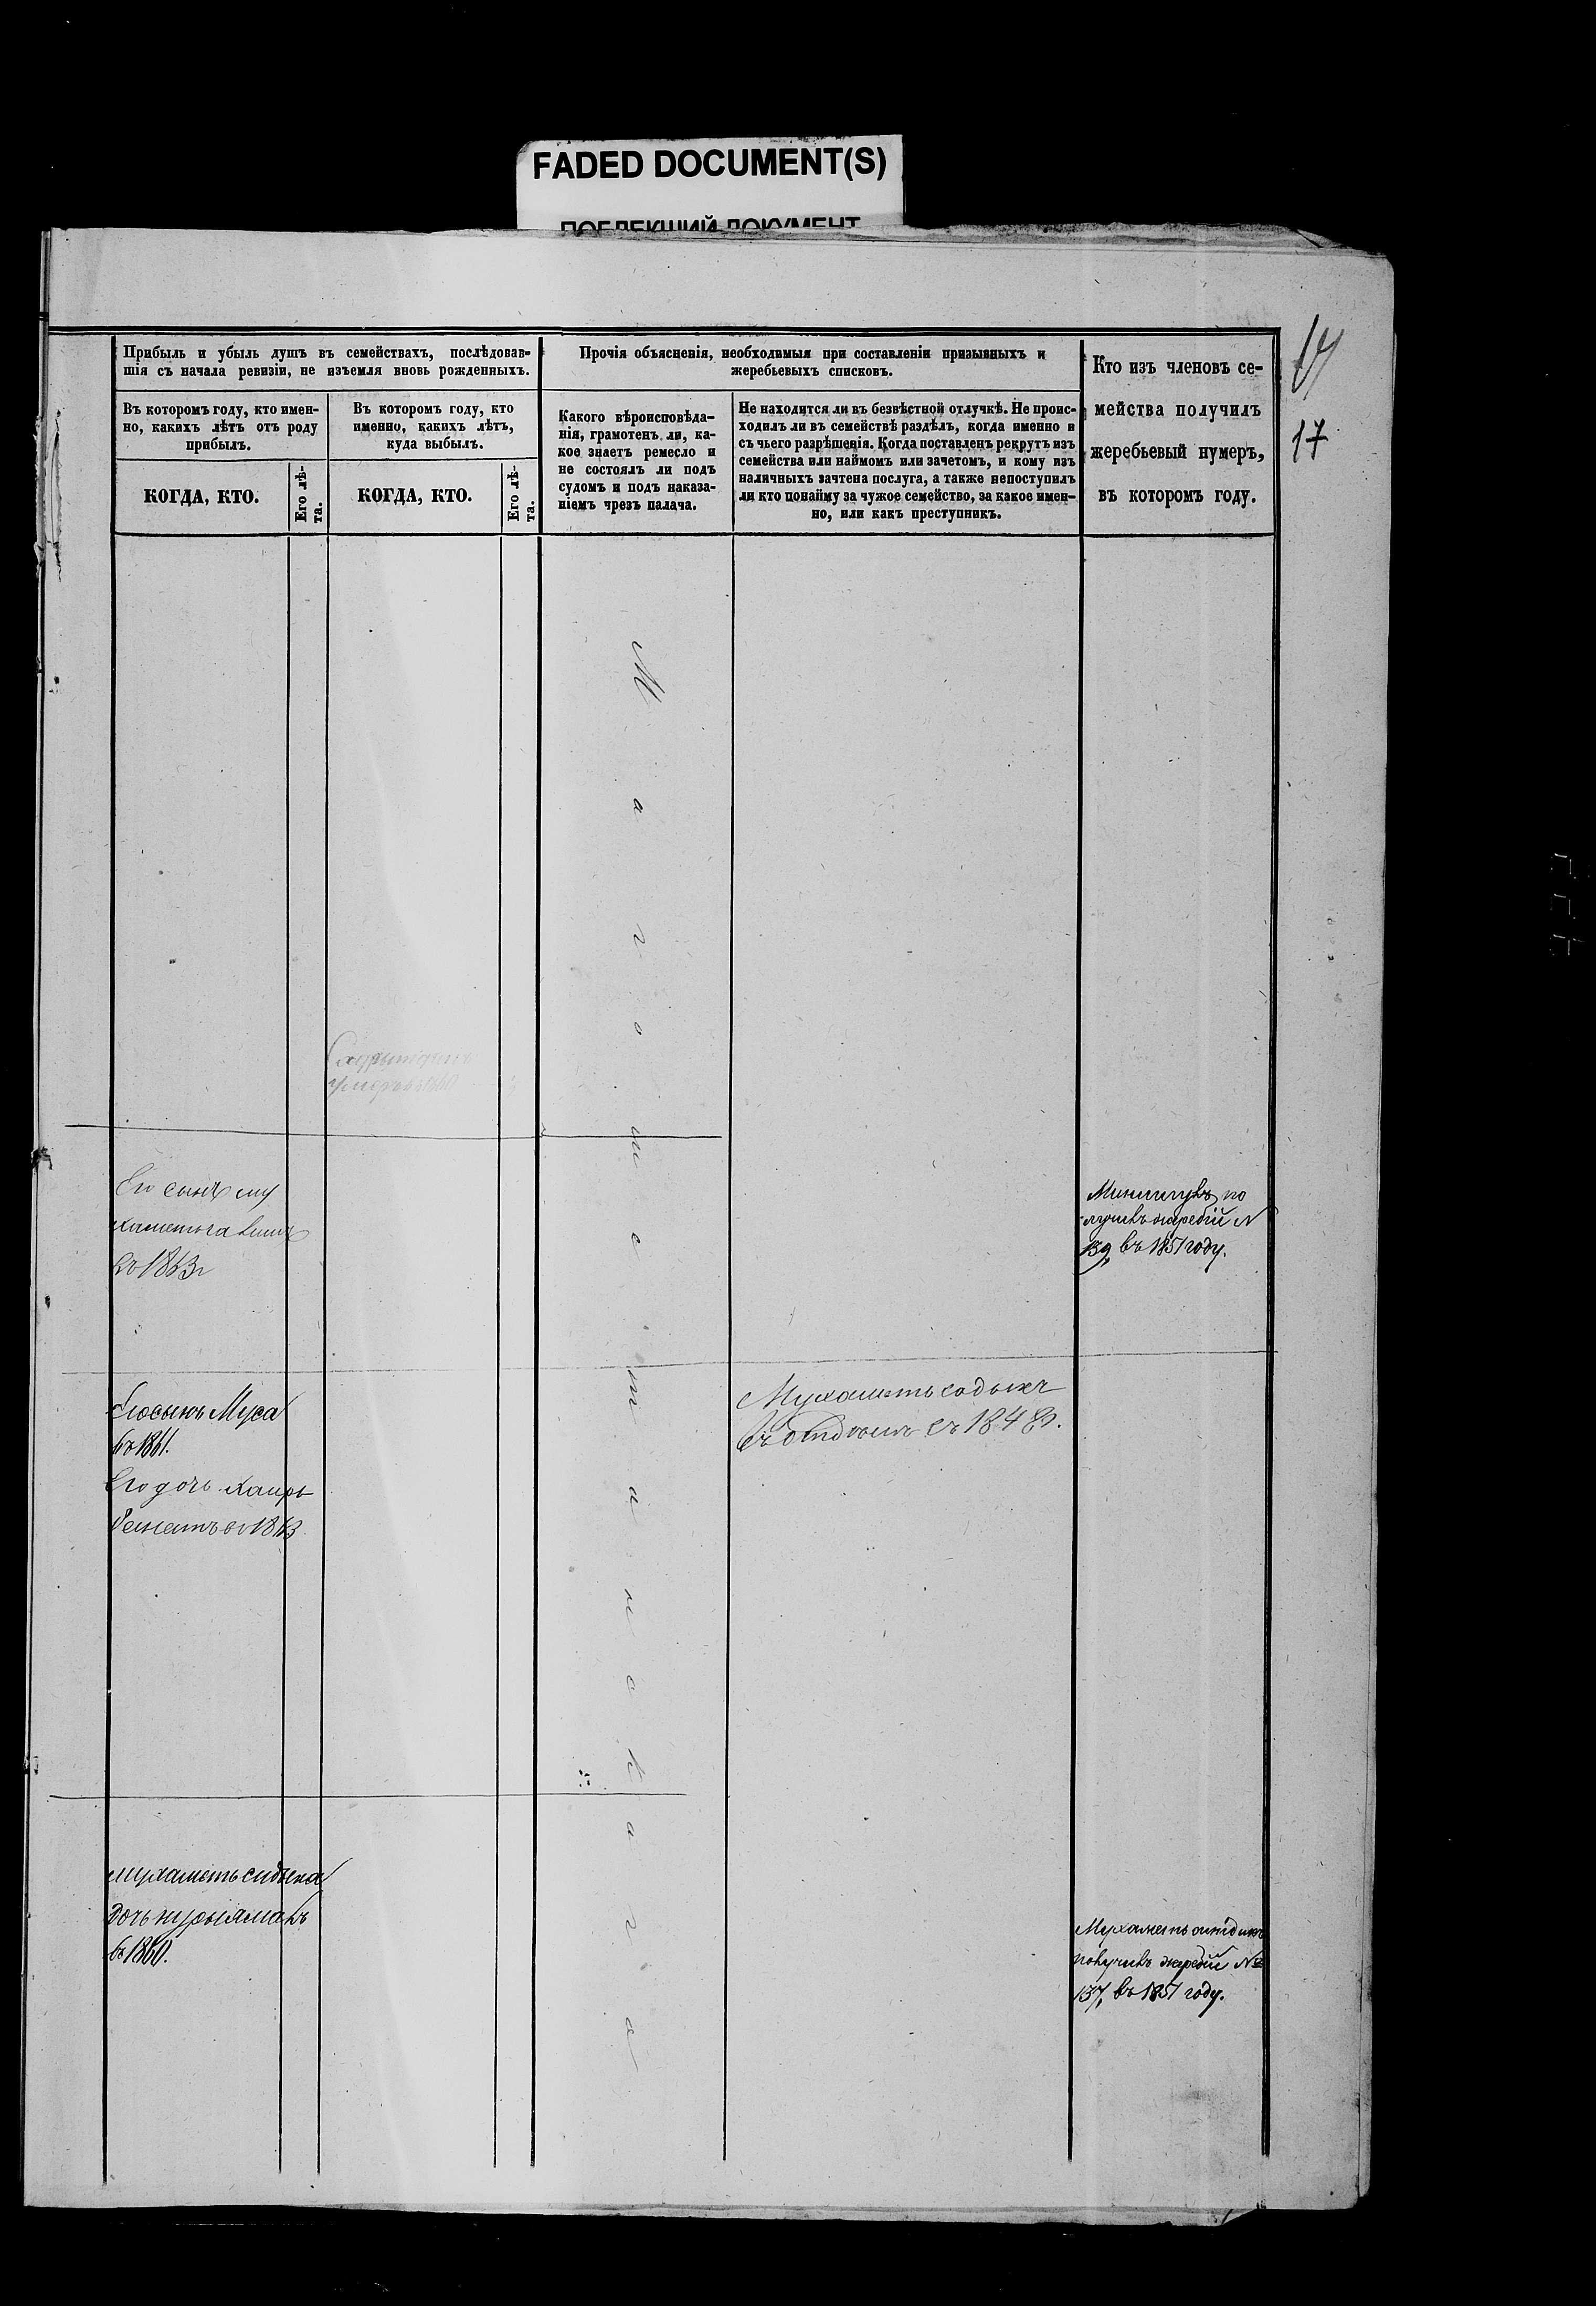 FADED DOCUMENT(S)
ПОБЛЕКШИЙ ДОКУМЕНТ
17
17
Прибыль и убыль душъ въ семействахъ, послѣдовав-
шія съ начала ревизіи, не изъемля вновь рожденныхъ.
Въ которомъ году, кто имен-
но, какихъ лѣтъ отъ роду
прибылъ.
КОГДА, КТО.
Его лѣ-
та.
Въ которомъ году, кто
именно, какихъ лѣтъ,
куда выбылъ.
КОГДА, КТО.
Его лѣ-
та.
Прочія объясненія, необходимыя при составленіи призывныхъ и
жеребьевыхъ списковъ.
Какого вѣроисповѣда-
нія, грамотенъ ли, ка-
кое знаетъ ремесло и
не состоялъ ли подъ
судомъ и подъ наказа-
ніемъ чрезъ палача.
Не находится ли въ безвѣстной отлучкѣ. Не проис-
ходилъ ли въ семействѣ раздѣлъ, когда именно и
съ чьего разрѣшенія. Когда поставленъ рекрутъ изъ
семейства или наймомъ или зачетомъ, и кому изъ
наличныхъ зачтена послуга, а также непоступилъ
ли кто понайму за чужое семейство, за какое имен-
но, или какъ преступникъ.
Кто изъ членовъ се-
мейства получилъ
жеребьевый нумеръ,
въ которомъ году.
Магометанскаго
умеръ въ 1860
Его сынъ му
хаметьга
въ 1863 г
Его сынъ Муса
въ 1861.
Его дочь Хаирь
въ 1863
Мухаметь садыкъ
съ 1848 г.
по
лучилъ жребій N
139, въ 1851 году.
мухаметь сидыка
дочь
въ 1860.
Мухаметь
получилъ жребій №
137, въ 1851 году.